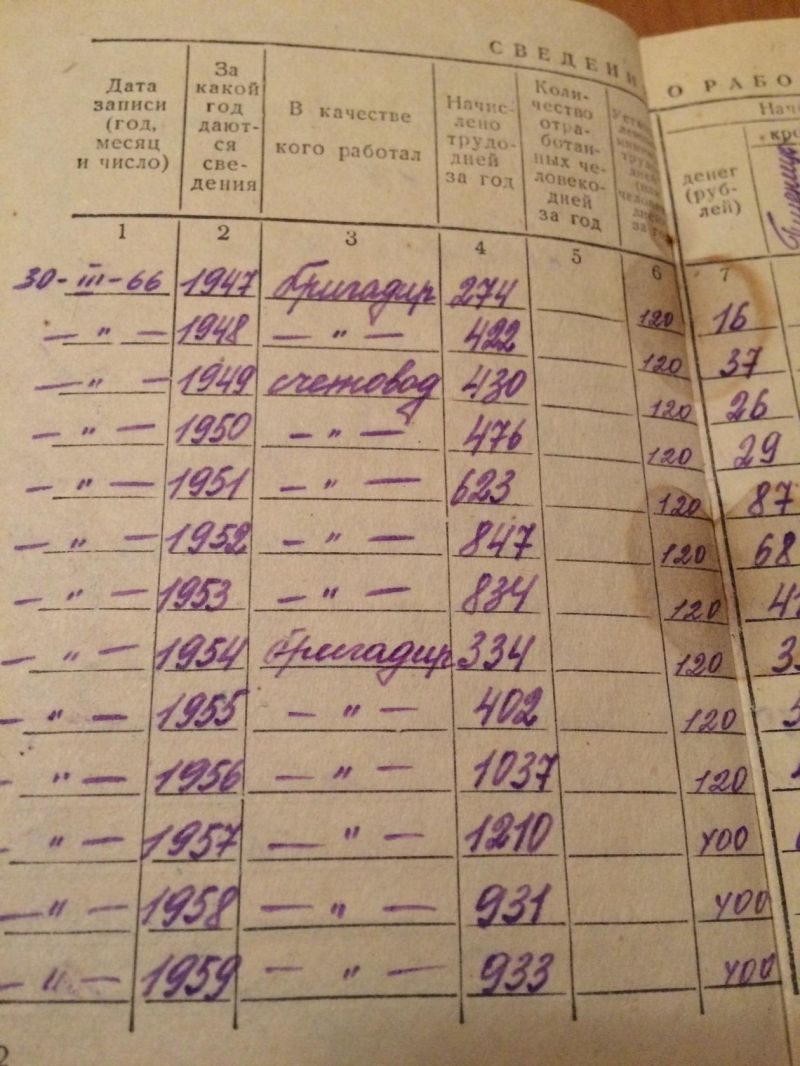 СВЕДЕНИ О РАБО
Дата записи (год, месяц и число)
За какой год даются сведения
В качестве кого работал
Начислено трудодней за год
Количество отработанных человекодней за год
денег (рублей)
1 2 3 4 5 6 7
30-III-66 1947 бригадир 274 120 16
— " — 1948 — " — 422 120 37
— " — 1949 счетовод 430 120 26
— " — 1950 — " — 476 120 29
— " — 1951 — " — 623 120 87
— " — 1952 — " — 847 120 68
— " — 1953 — " — 834 120
— " — 1954 бригадир 334 120
— " — 1955 — " — 402 120
— " — 1956 — " — 1037 120
— " — 1957 — " — 1210 400
— " — 1958 — " — 931 400
— " — 1959 — " — 933 400
2